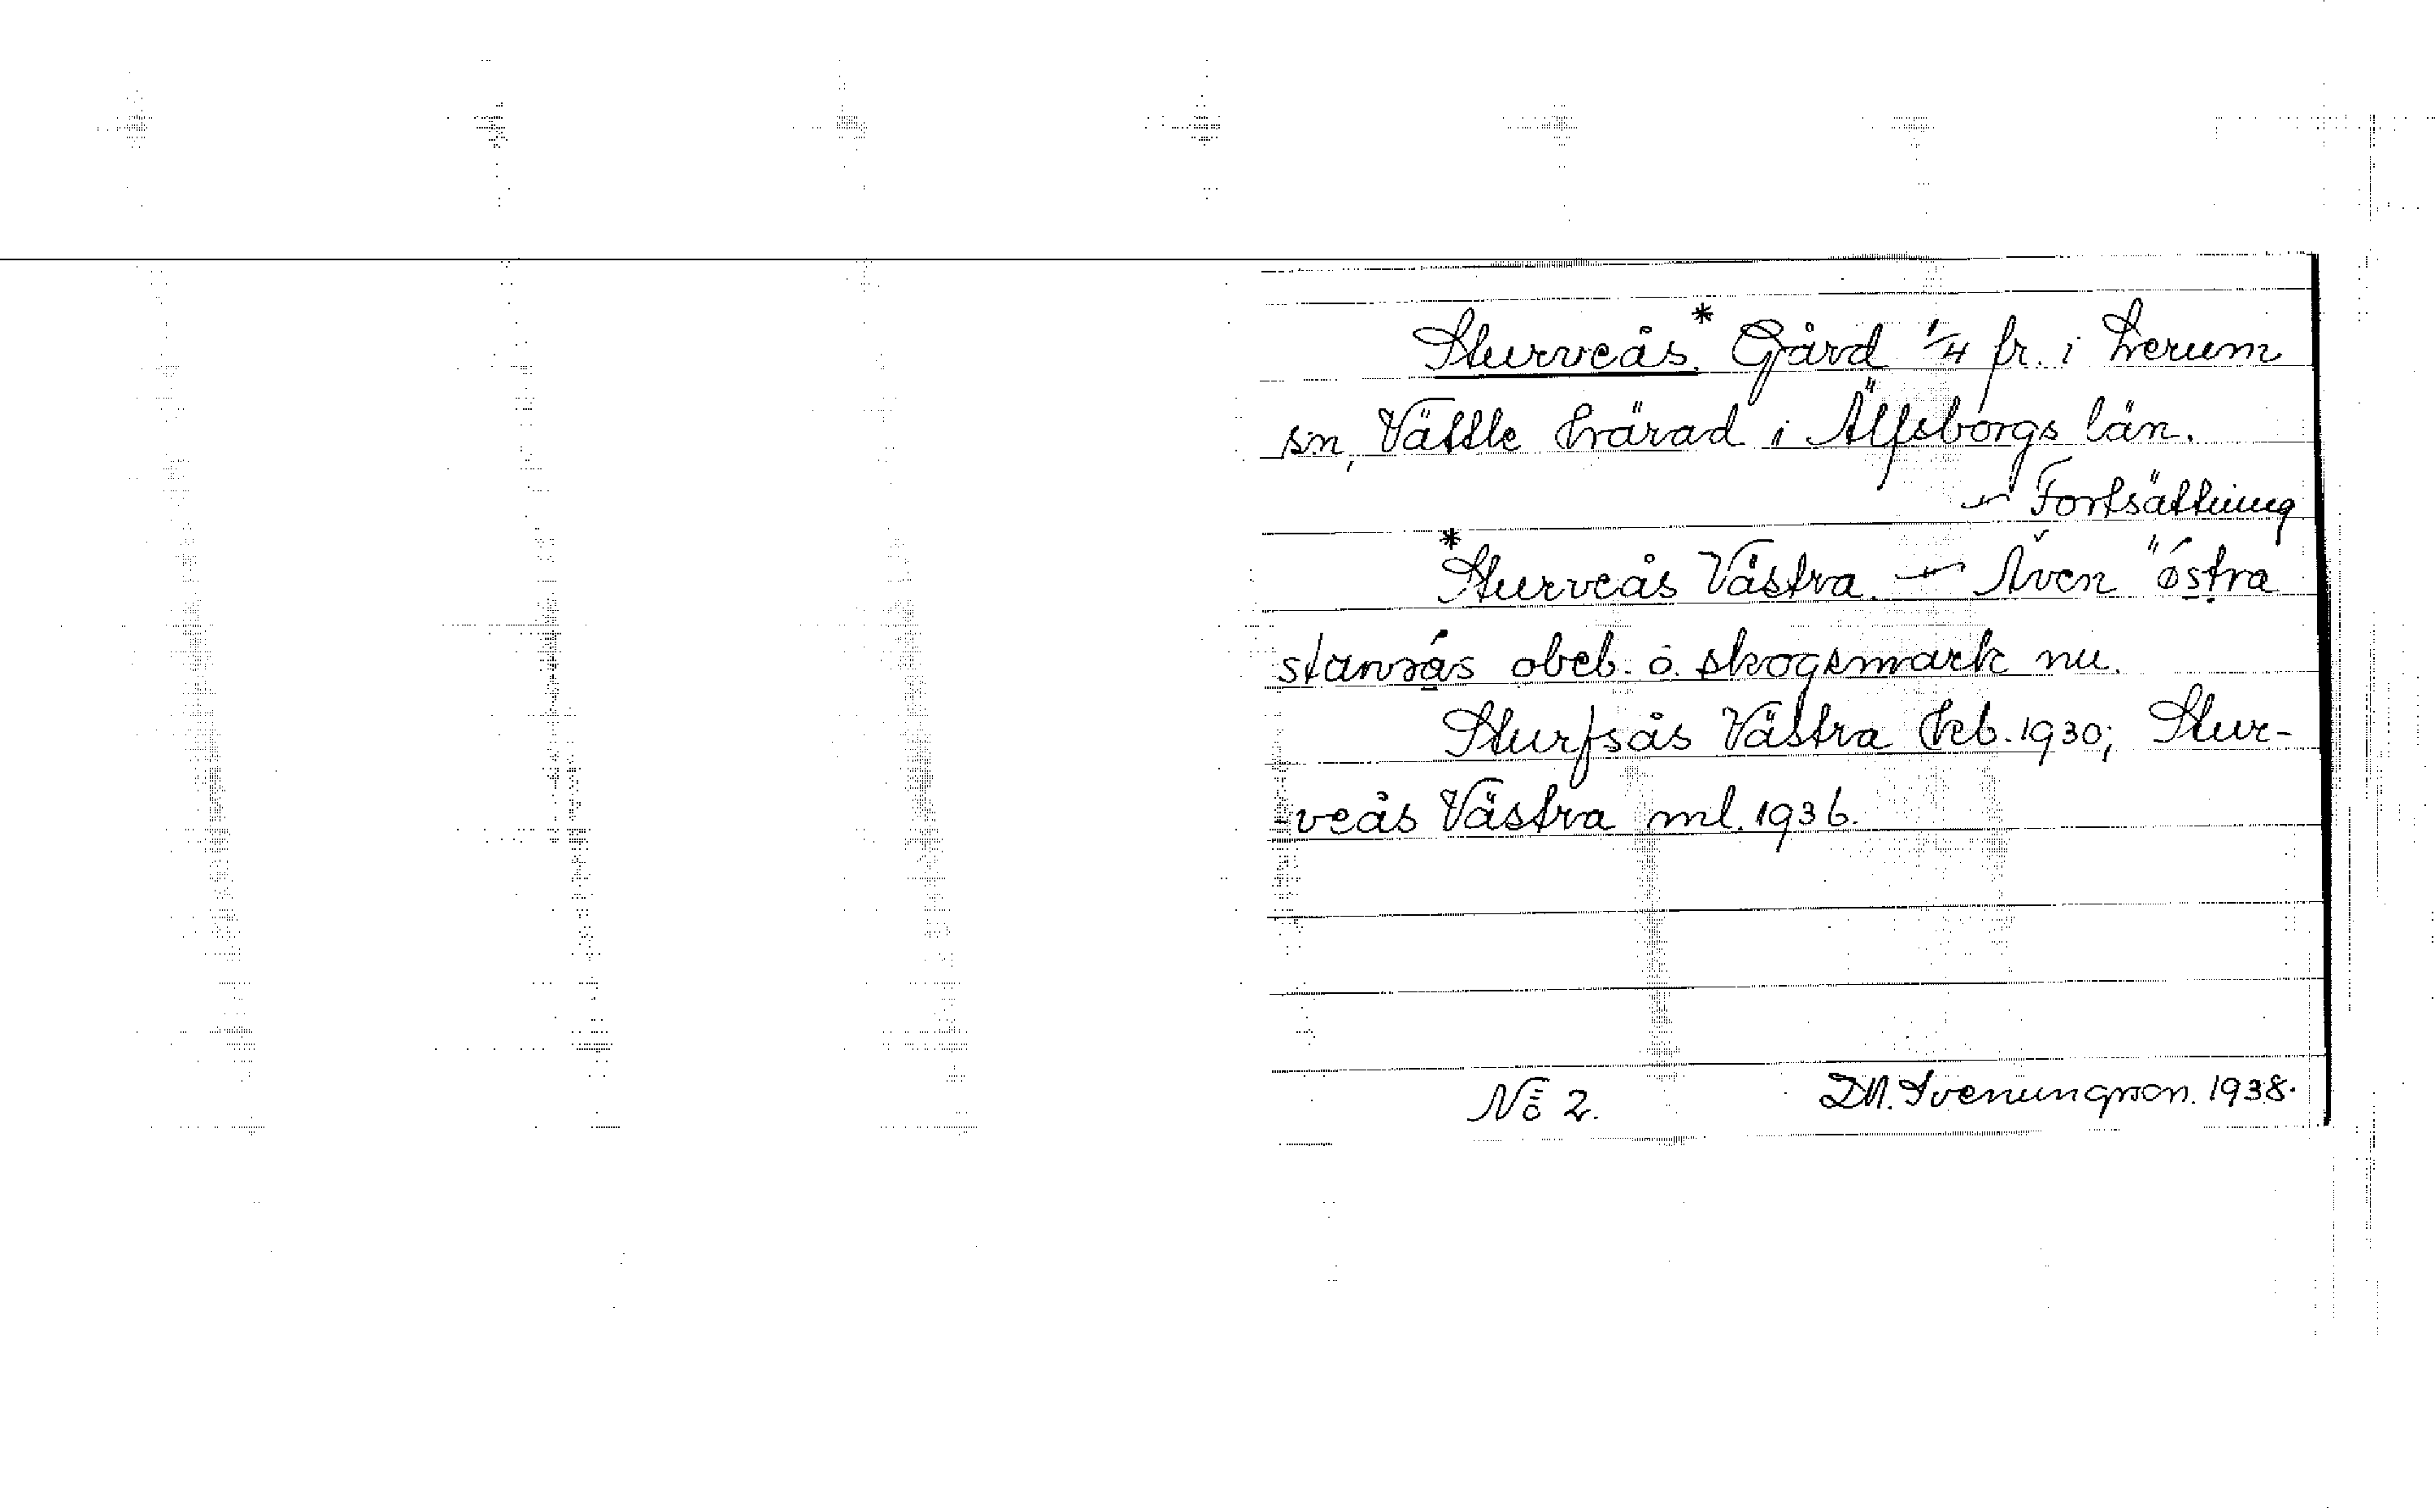 Sturveås.* Gård 1/4 fr. i Lerum
sn, Vättle härad i Älfsborgs län.
~ Fortsättning
*Sturveås Västra. ~ Även östra
starvås obeb. o. skogsmark nu.
Sturfsås Västra Jeb. 1930; Stur-
-veås Västra ml. 1936.
No 2. D.N. Svenungson. 1938.